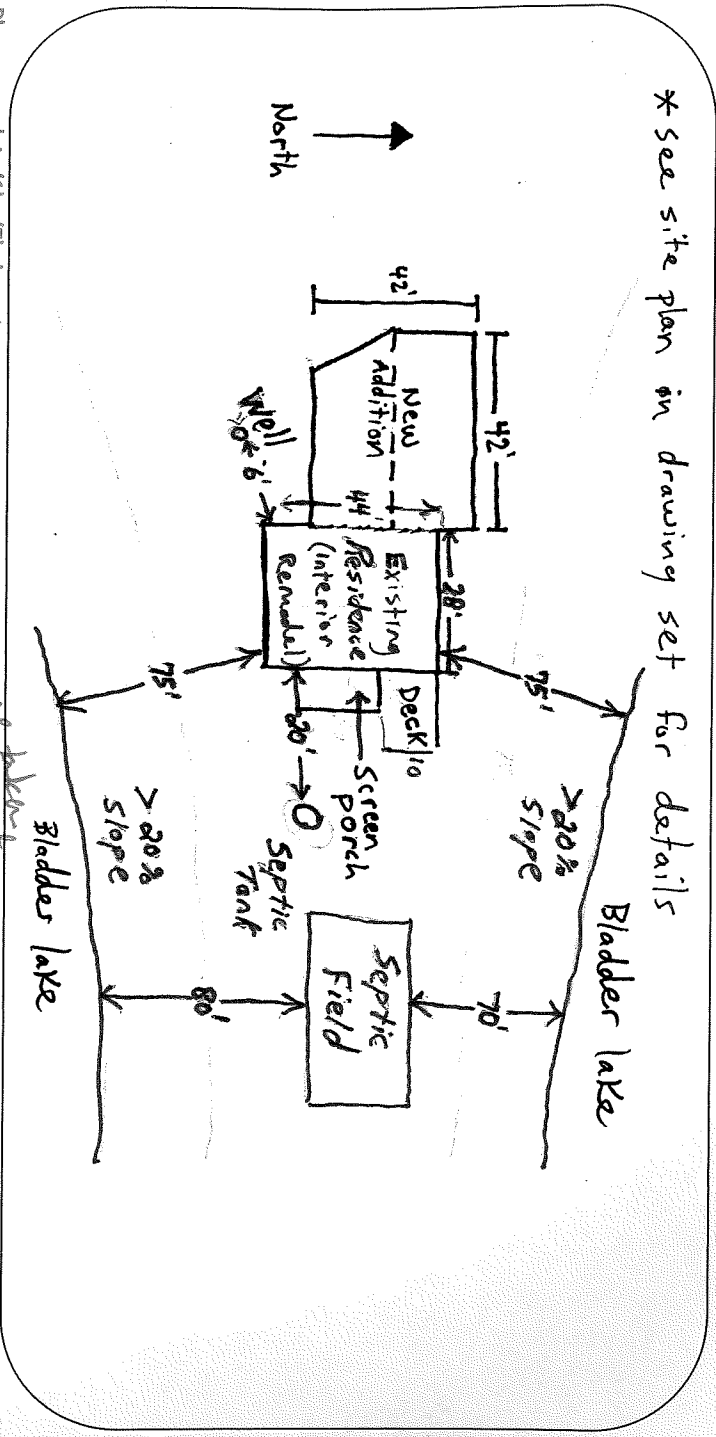 * see site plan in drawing set for details
North
42'
42'
New
Addition
Well
6'
44'
28'
Existing
Residence
(Interior
Remodel)
Deck
10
Screen
porch
20'
Septic
Tank
Septic
Field
75'
75'
70'
80'
>20%
slope
>20%
slope
Bladder lake
Bladder lake